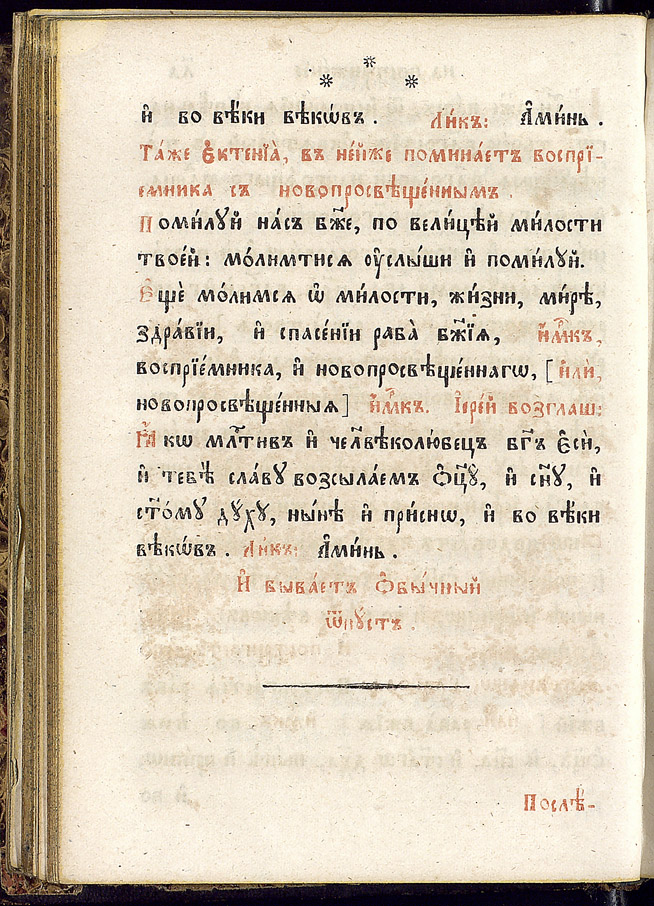 * * *
и҆ во вѣ́ки вѣкѡ́въ . Ли́къ: А҆ми́нь .
Та́же є҆ктенїѧ̀, въ не́йже помина́етъ воспрїе-
емника съ новопросвѣще́ннымъ .
Поми́лꙋй на́съ бж҃е, по вели́цѣй ми́лости
твое́й : мо́лимтисѧ ᲂу҆слы́ши и҆ поми́лꙋй.
Є҆щѐ мо́лимсѧ ѡ҆ ми́лости, жи́зни, ми́рѣ,
здра́вїи, и҆ спасе́нїи раба̀ бж҃їѧ, и҆́м҃къ,
воспрїе́мника, и҆ новопросвѣще́ннагѡ, [ и҆лѝ,
новопросвѣще́нныѧ ] и҆́м҃къ. І҆ере́й возглаш:
Ꙗ҆́кѡ млⷭ҇тивъ и҆ чело́вѣколю́бецъ бг҃ъ є҆сѝ,
и҆ тебѣ̀ сла́вꙋ возсыла́емъ ѻ҆ц҃ꙋ̀, и҆ сн҃ꙋ, и҆
ст҃о́мꙋ дꙋ́хꙋ, ны́нѣ и҆ при́снѡ, и҆ во вѣ́ки
вѣкѡ́въ . Ли́къ: А҆ми́нь .
И҆ быва́етъ ѻ҆бы́чный
ѿпꙋ́стъ .
Послѣ́-